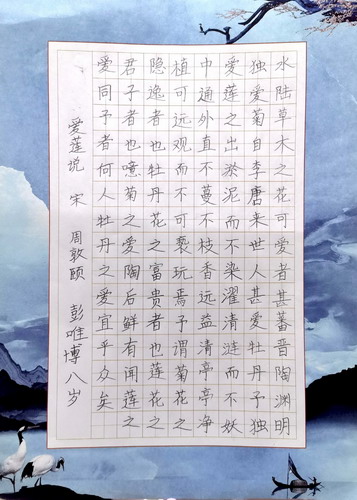 水陆草木之花可爱者甚蕃晋陶渊明
独爱菊自李唐来世人甚爱牡丹予独
爱莲之出淤泥而不染濯清涟而不妖
中通外直不蔓不枝香远益清亭亭净
植可远观而不可亵玩焉予谓菊花之
隐逸者也牡丹花之富贵者也莲花之
君子者也噫菊之爱陶后鲜有闻莲之
爱同予者何人牡丹之爱宜乎众矣
爱莲说 宋 周敦颐 彭唯博八岁